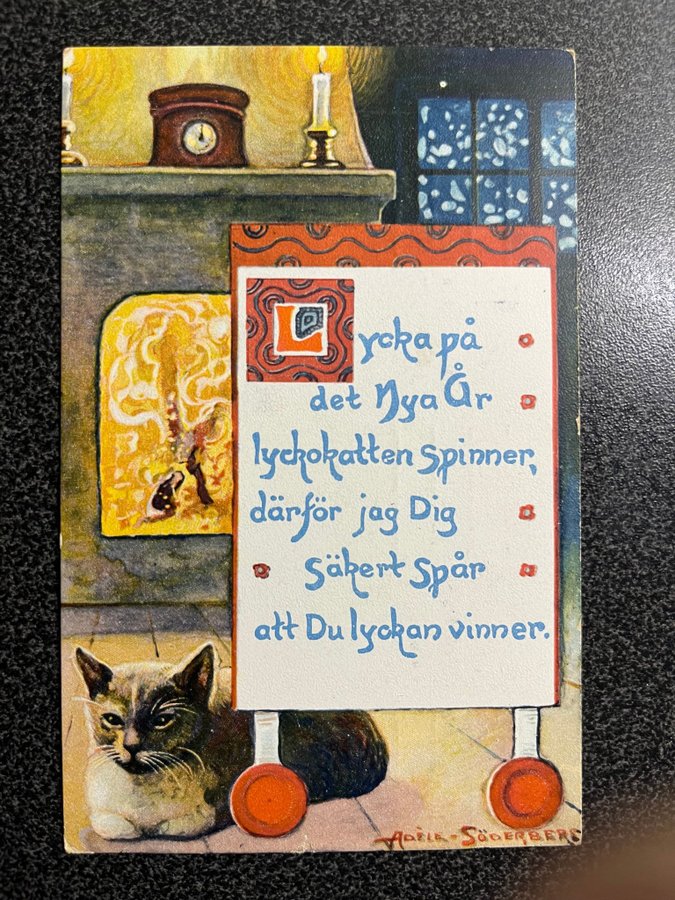 Lycka på
det Nya År
lyckokatten spinner,
därför jag Dig
säkert spår
att Du lyckan vinner.
ADÈLE-SÖDERBERG